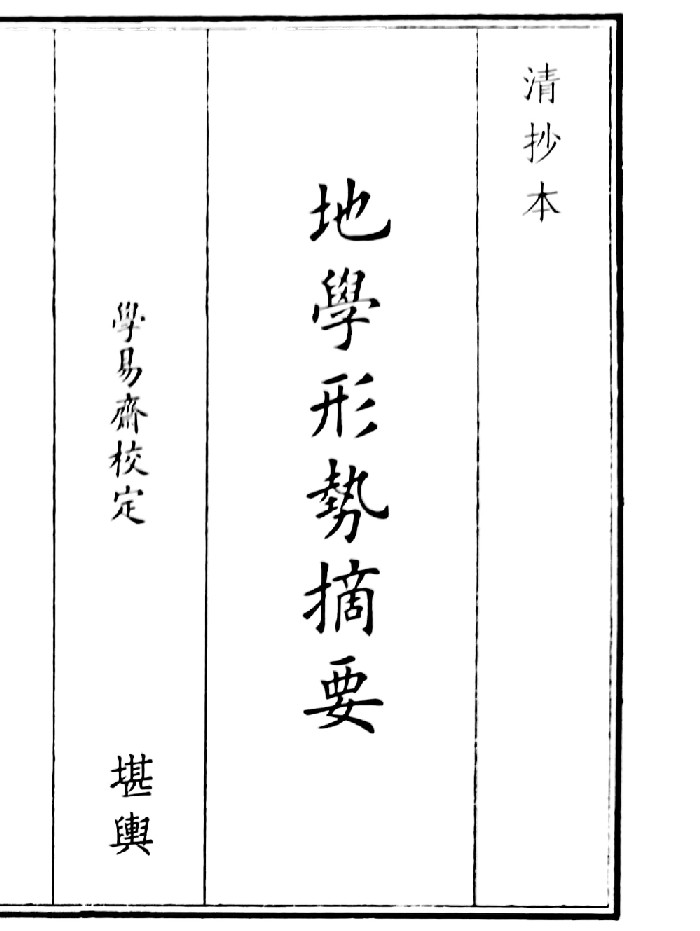 清抄本
地學形勢摘要
學易齋校定
堪輿